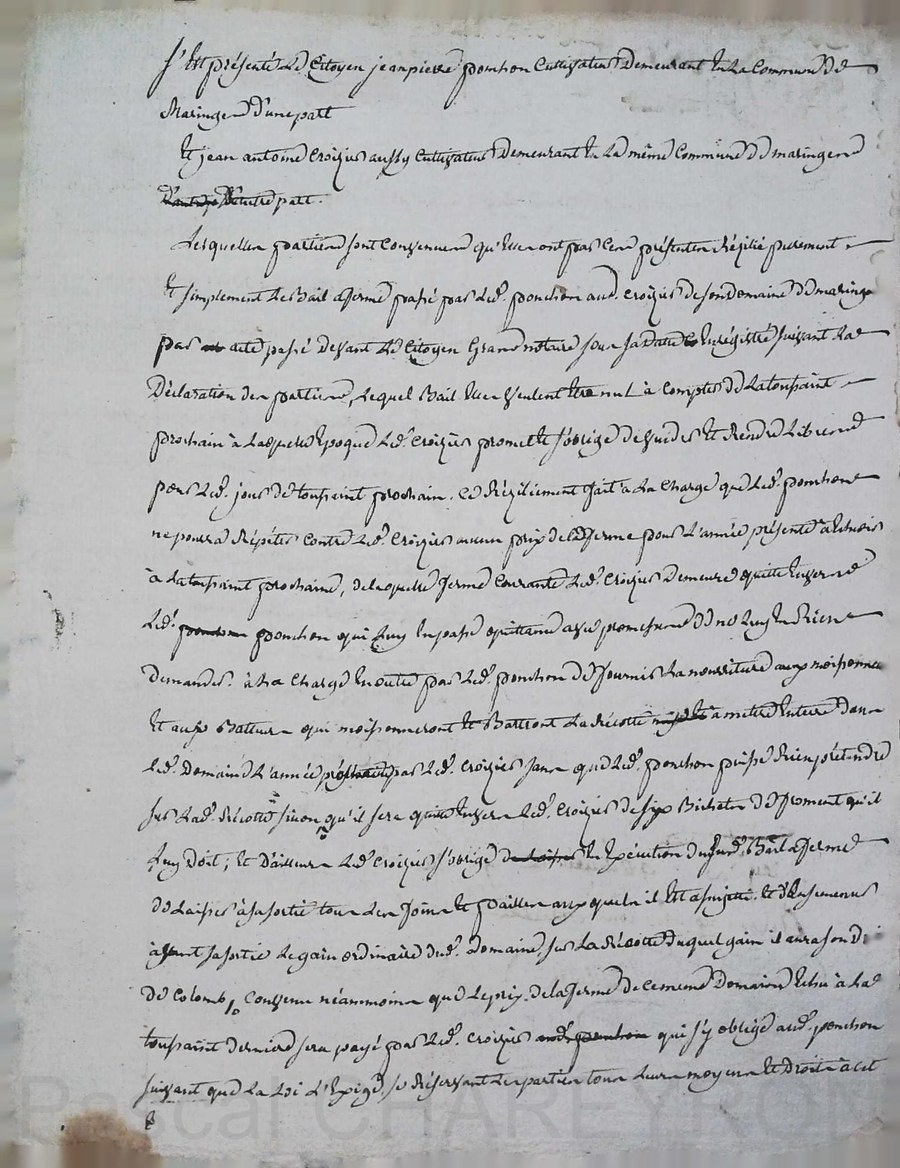 S'est présenté Le Citoyen jean pierre ponchon Cultivateur Demeurant en La Commune de
Maringes d'une part
Et jean antoine Croizier aussy Cultivateur Demeurant en La même Commune de maringes
D'autre part.
Lesquelles parties sont Convenues qu'elles ont par Ces présentes Rézilié purement
Et simplement Le Bail a ferme passé par Led. ponchon aud. Croizier de son Domaine de maringes
par acte passé Devant Le Citoyen Grand notaire sous sa Date Enrégistré suivant La
Déclaration des parties, Lequel Bail elles veulent Etre nul à Compter de La toussaint
prochain à Laquelle Epoque Led. Croizier promet et s'oblige de vuider Et Rendre Libre
pour Led. jour de toussaint prochain. Ce Réziliement fait à La Charge que Led. ponchon
ne pourra Répéter Contre Led. Croizier aucun prix de ferme pour L'année présente à Echeoir
à La toussaint prochaine, de laquelle ferme Courante Led. Croizier Demeure quitte Envers
Led. ponchon qui Luy En passe quittance avec promesse de ne Luy En Rien
Demander. à La Charge En outre par Led. ponchon de fournir La nourriture aux moissonneurs
Et aux Batteurs qui moissonneront Et Battront La Récolte a mettre En terre Dans
Led. Domaine L'année par Led. Croizier sans que Led. ponchon puisse Rien prétendre
sur Lad. Récolte sinon qu'il sera quitte Envers Led. Croizier de six Bichets de froment qu'il
Luy Doit; Et D'ailleurs Led. Croizier s'oblige En Exécution dud. Bail a ferme
de Laisser à sa sortie tous Les foins Et pailles auxquels il Est assujetti. Et d'Ensemencer
avant sa sortie Le gain ordinaire dud. Domaine, sur La Récolte Duquel gain il aura son
de Colomb, Convenu néanmoins que Le prix de la ferme de Ce même Domaine Echu à La
toussaint Dernier sera payé par Led. Croizier qui s'y oblige aud. ponchon
suivant que La Loi L'Exige, se Réservant Les parties tous Leurs moyens Et Droits à Cet
Pascal CHAREYRON